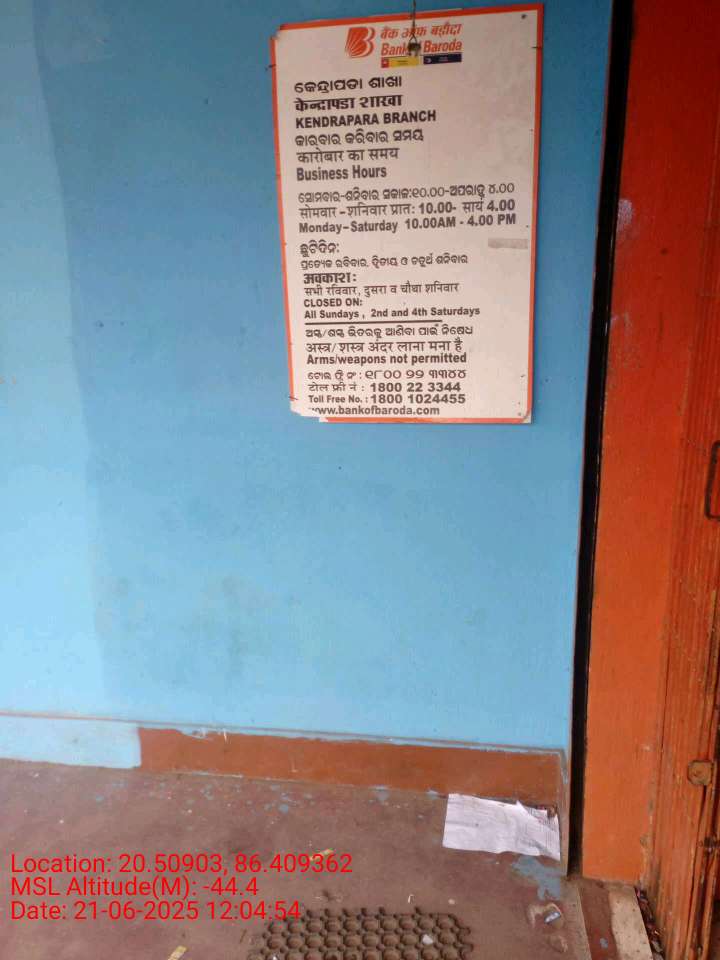 बैंक ऑफ़ बड़ौदा
Bank of Baroda
କେନ୍ଦ୍ରାପଡା ଶାଖା
केन्द्रापडा शाखा
KENDRAPARA BRANCH
କାରବାର କରିବାର ସମୟ
कारोबार का समय
Business Hours
ସୋମବାର-ଶନିବାର ସକାଳ:୧୦.୦୦-ଅପରାହ୍ନ ୪.୦୦
सोमवार - शनिवार प्रात: 10.00- सायं 4.00
Monday-Saturday 10.00AM - 4.00 PM
ଛୁଟିଦିନ:
ପ୍ରତ୍ୟେକ ରବିବାର, ଦ୍ୱିତୀୟ ଓ ଚତୁର୍ଥ ଶନିବାର
अवकाश:
सभी रविवार, दुसरा व चौथा शनिवार
CLOSED ON:
All Sundays , 2nd and 4th Saturdays
ଅସ୍ତ୍ର/ଶସ୍ତ୍ର ଭିତରକୁ ଆଣିବା ପାଇଁ ନିଷେଧ
अस्त्र/ शस्त्र अंदर लाना मना है
Arms/weapons not permitted
ଟୋଲ ଫ୍ରି ନଂ : ୧୮୦୦ ୨୨ ୩୩୪୪
टोल फ्री नं : 1800 22 3344
Toll Free No. : 1800 1024455
www.bankofbaroda.com
Location: 20.50903, 86.409362
MSL Altitude(M): -44.4
Date: 21-06-2025 12:04:54